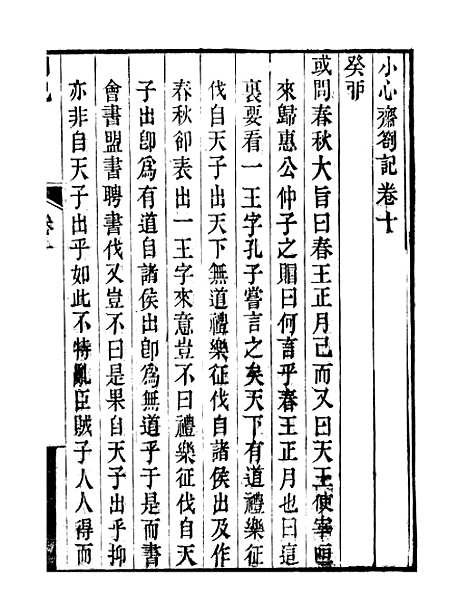 小心齋劄記卷十
癸卯
或問春秋大旨曰春王正月已而又曰天王使宰咺
來歸惠公仲子之賵曰何言乎春王正月也曰這
裏要看一王字孔子嘗言之矣天下有道禮樂征
伐自天子出天下無道禮樂征伐自諸侯出及作
春秋卻表出一王字來意豈不曰禮樂征伐自天
子出卽爲有道自諸侯出卽爲無道乎于是而書
會書盟書聘書伐又豈不曰是果自天子出乎抑
亦非自天子出乎如此不特亂臣賊子人人得而